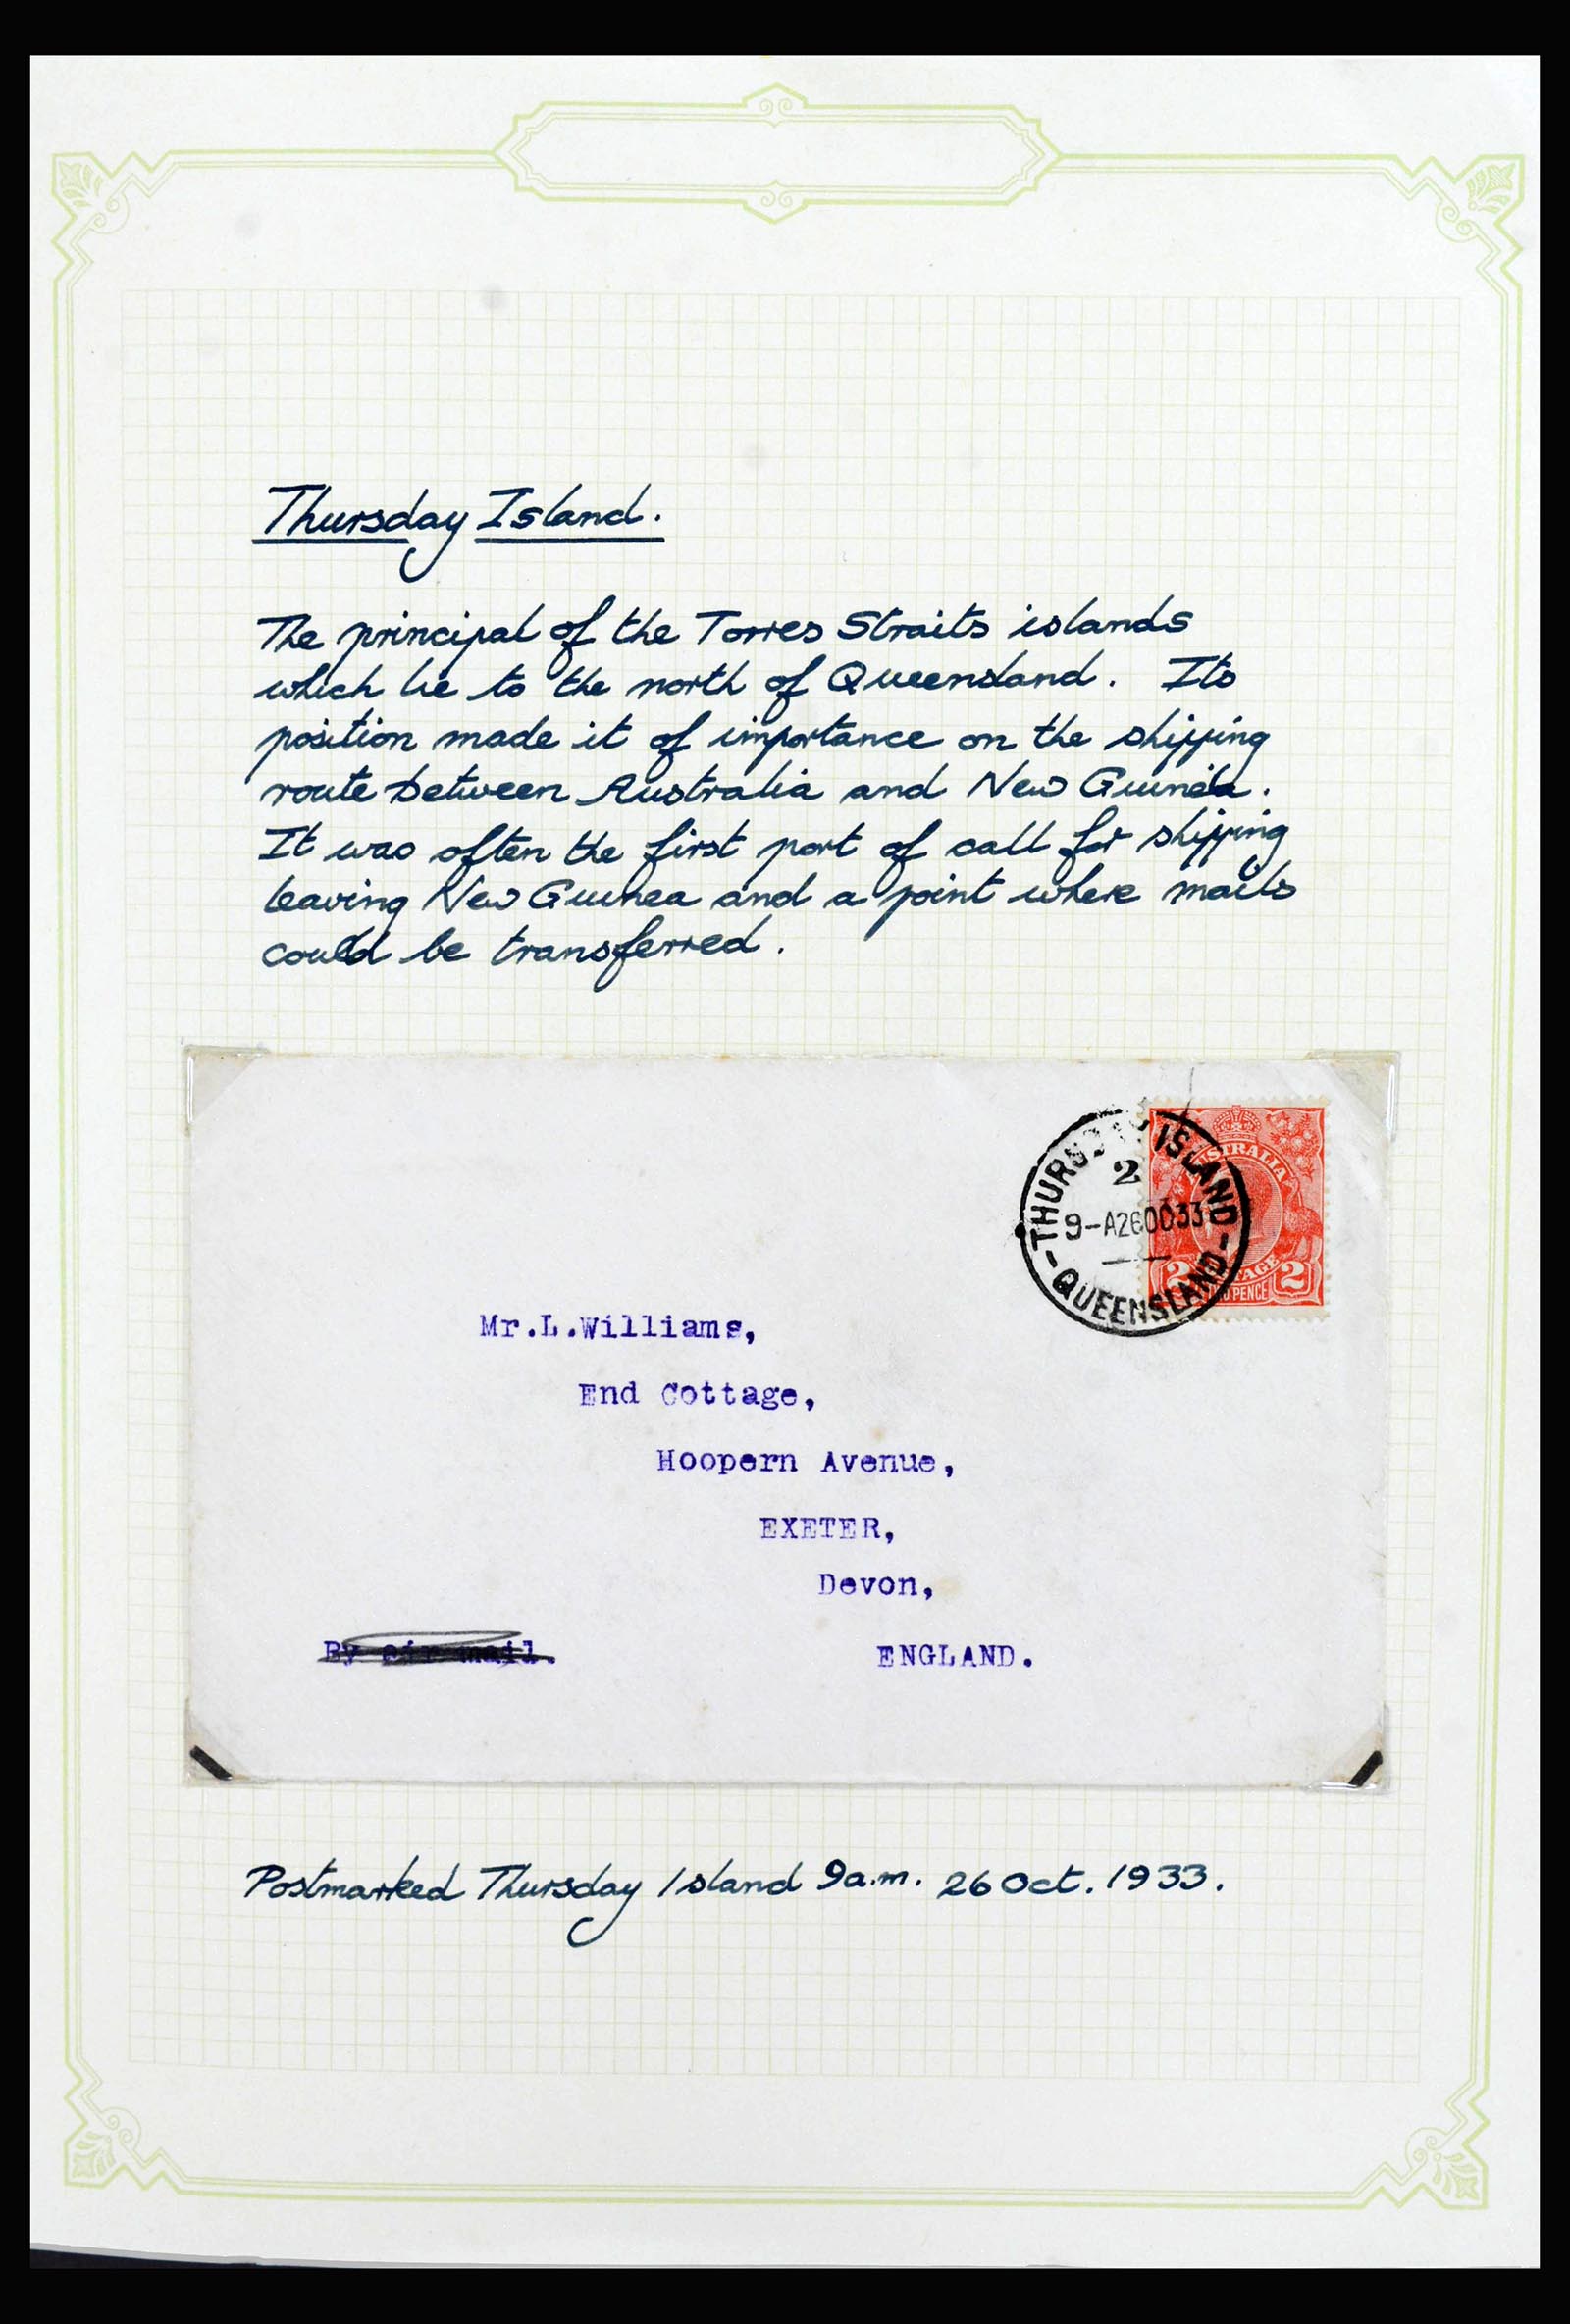 Thursday Island.
The principal of the Torres Straits islands
which lie to the north of Queensland. Its
position made it of importance on the shipping
route between Australia and New Guinea.
It was often the first port of call for shipping
leaving New Guinea and a point where mails
could be transferred.
THURSDAY ISLAND
2
9-A26OC33
-QUEENSLAND-
AUSTRALIA
POSTAGE
2 TWO PENCE 2
Mr.L.Williams,
End Cottage,
Hoopern Avenue,
EXETER,
Devon,
By air mail.
ENGLAND.
Postmarked Thursday Island 9a.m. 26 Oct. 1933.